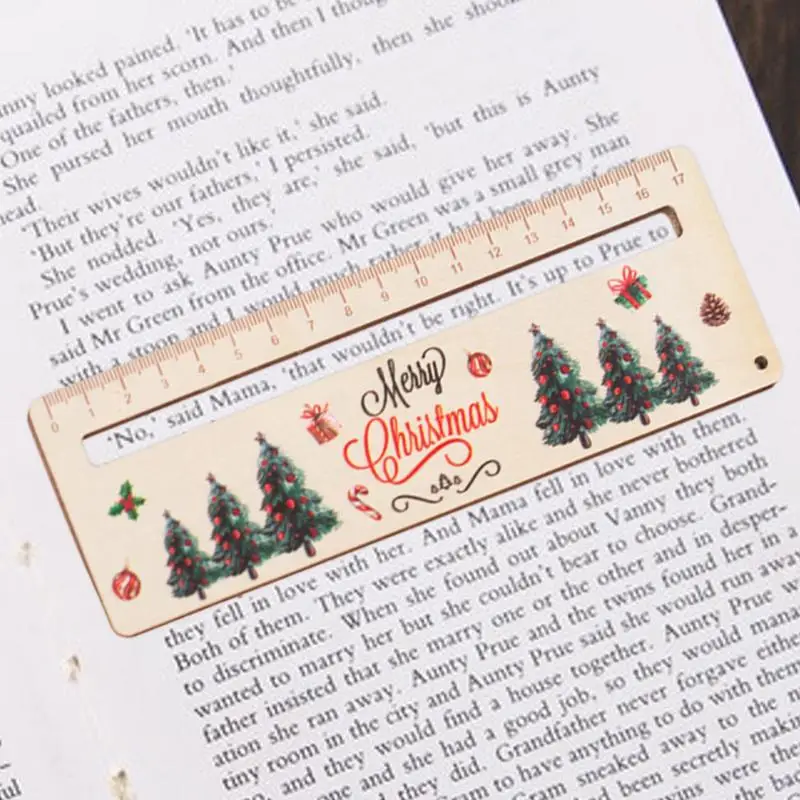 nny looked pained. 'It has to be
quailed from her scorn. And then I though
'One of the fathers, then.'
She pursed her mouth thoughtfully, then she shook
head.
'Their wives wouldn't like it,' she said.
'But they're our fathers,' I persisted.
She nodded. 'Yes, they are,' she said, 'but this is Aunty
Prue's wedding, not ours.'
I went to ask Aunty Prue who would give her away. She
said Mr Green from the office. Mr Green was a small grey man
with a stoop and I would much rather it had been one of
0 1 2 3 4 5 6 7 8 9 10 11 12 13 14 15 16 17
'No,' said Mama, 'that wouldn't be right. It's up to Prue to
Merry
Christmas
they fell in love with her. And Mama fell in love with them.
Both of them. They were exactly alike and she never bothered
to discriminate. When she found out about Vanny they both
wanted to marry her but she couldn't bear to choose. Grand-
father insisted that she marry one or the other and in desper-
ation she ran away. Aunty Prue and the twins found her in a
tiny room in the city and Aunty Prue said she would run away
and they would find a house together. Aunty Prue w
one and she had a good job, so they would mana
they did. Grandfather never forgave either
am to have anything to do with them
Gram sneaked away to the
had been secretly making
twins were the